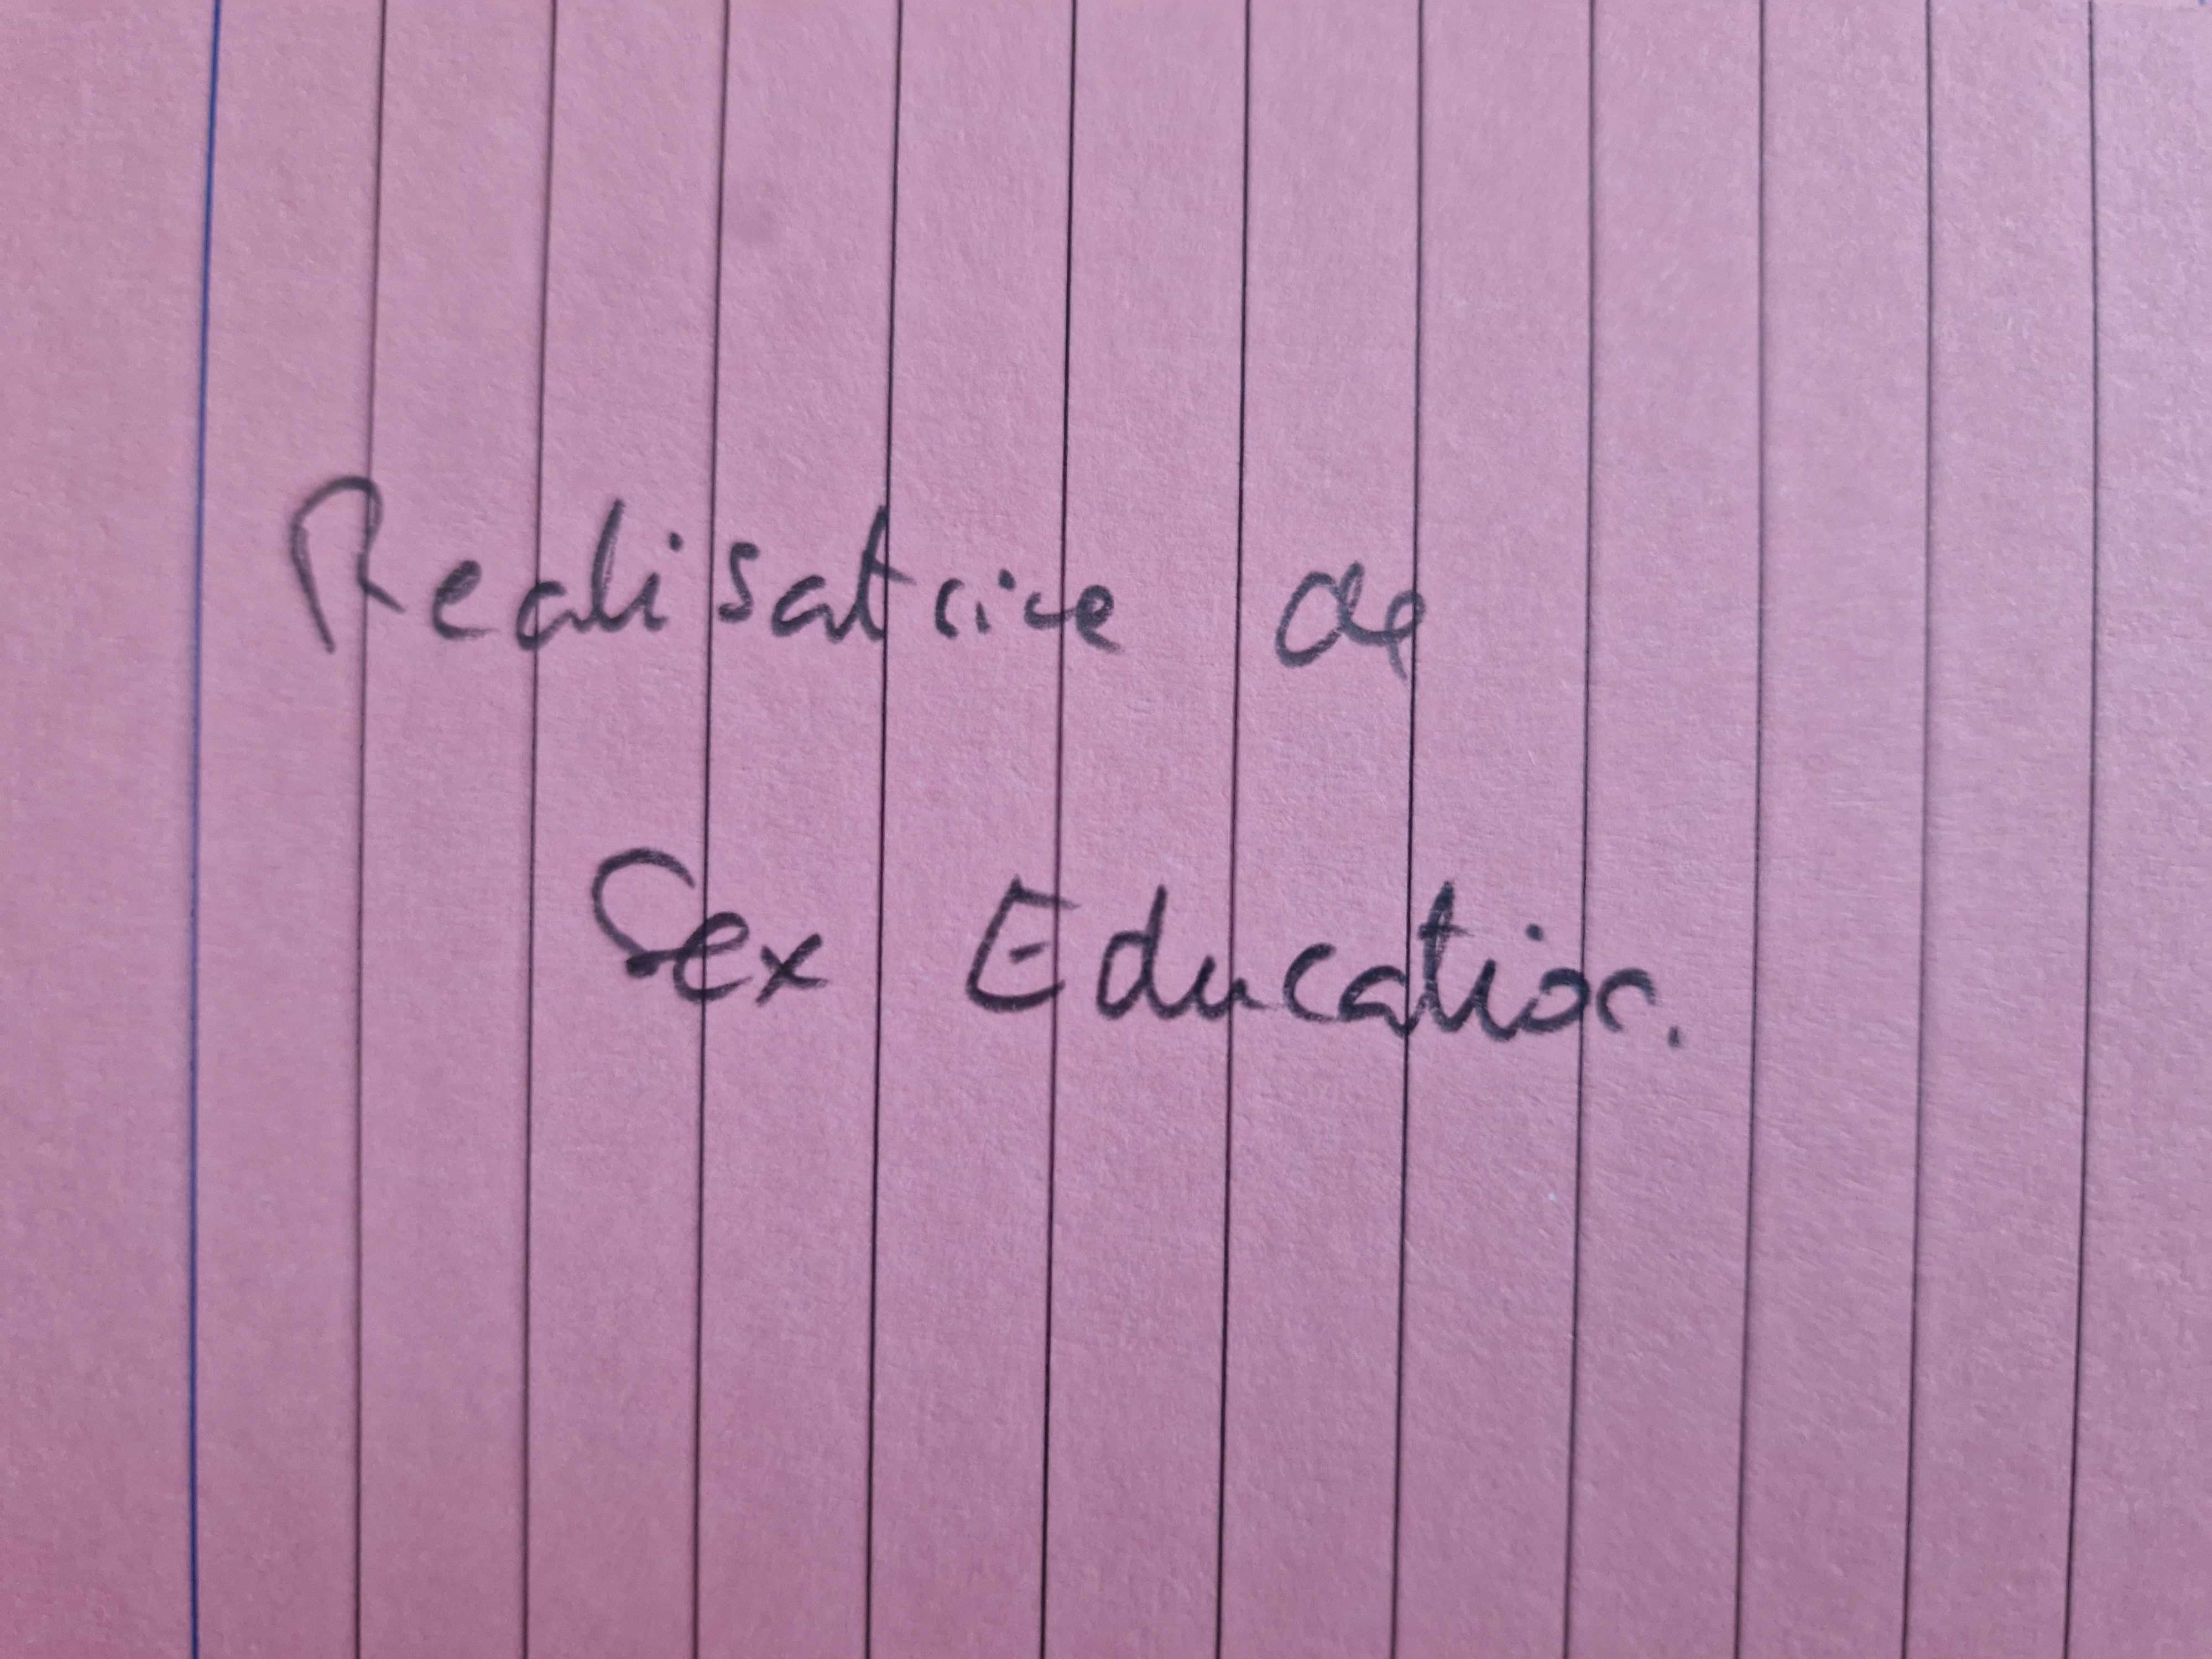 Realisatrice de
Sex Education.